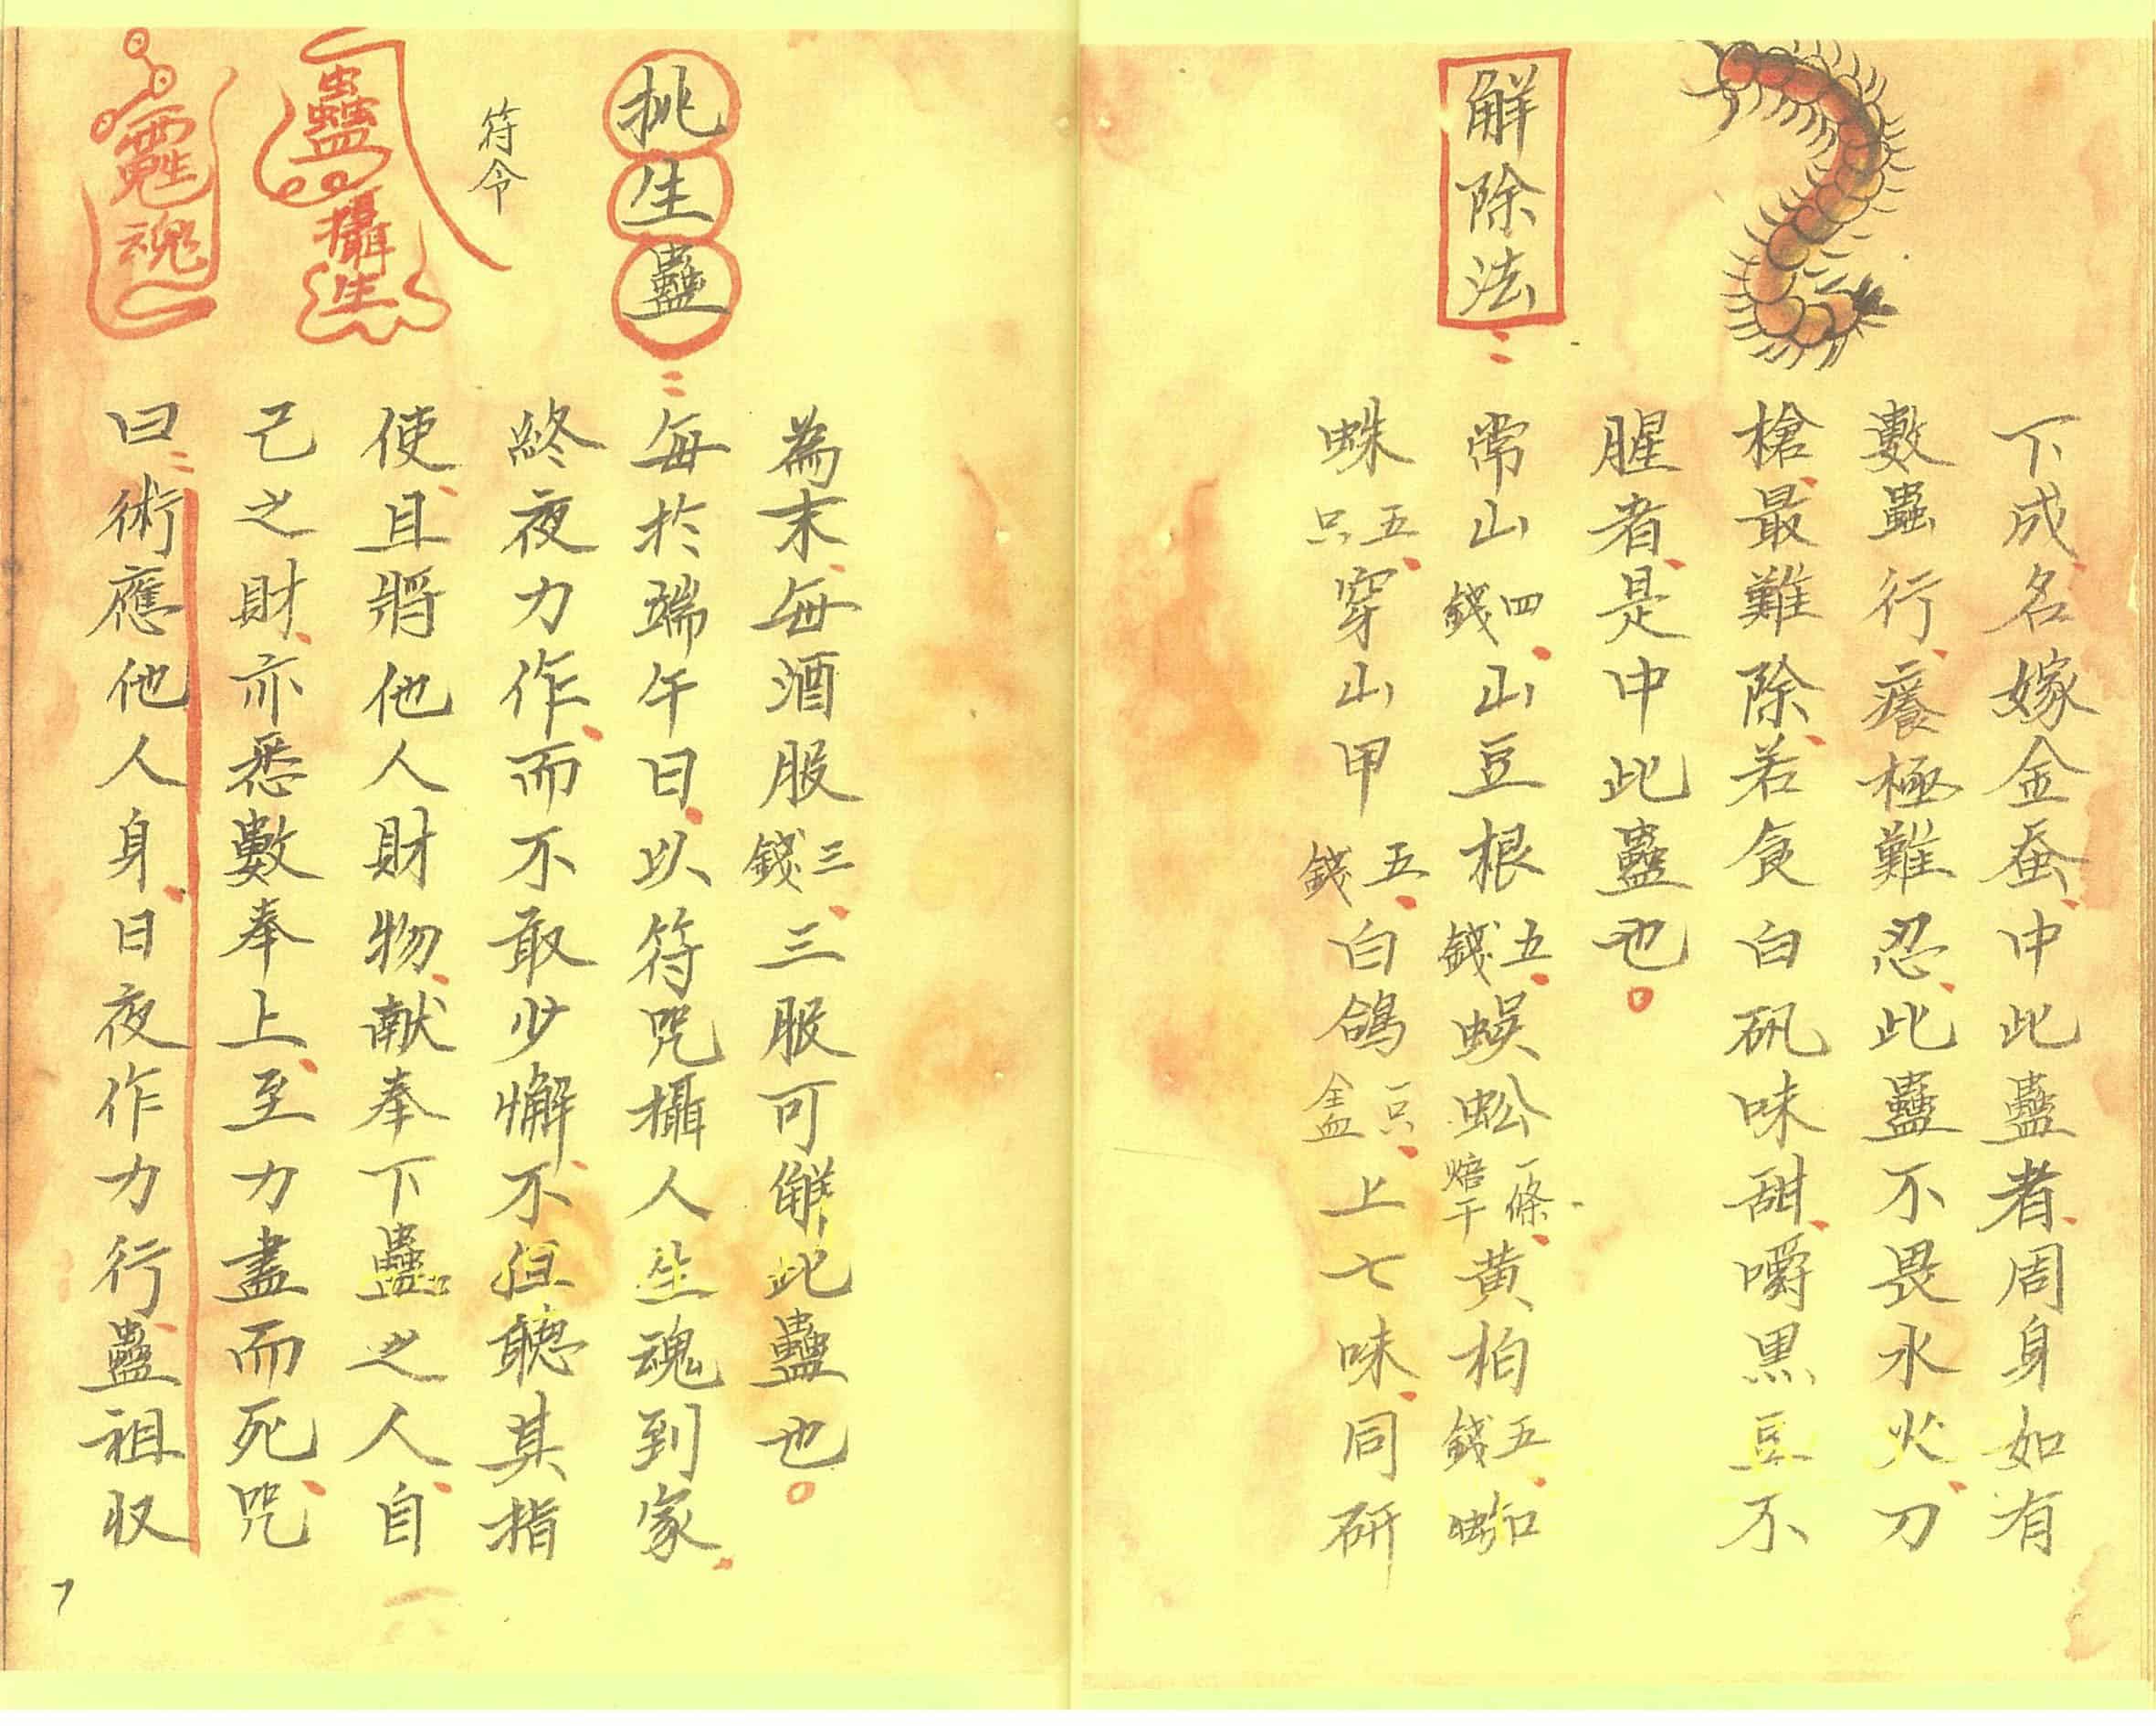 下成名嫁金蚕中此蠱者周身如有
數蟲行癢極難忍此蠱不畏水火刀
槍最難除若食白矾味甜嚼黑豆不
腥者是中此蠱也
解除法
常山四錢山豆根五錢蜈蚣一條焙干黄柏五錢蜘
蛛五只穿山甲五錢白鴿一只全血上七味同研
為末每酒服三錢三服可解此蠱也
挑生蠱
每於端午日以符咒攝人生魂到家
終夜力作而不敢少懈不但聽其指
符令
使且將他人財物献奉下蠱之人自
己之財亦悉數奉上至力盡而死咒
曰術應他人身日夜作力行蠱祖収
蠱攝生
魂
7